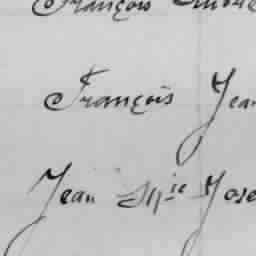 François
François Jean
Jean Jose